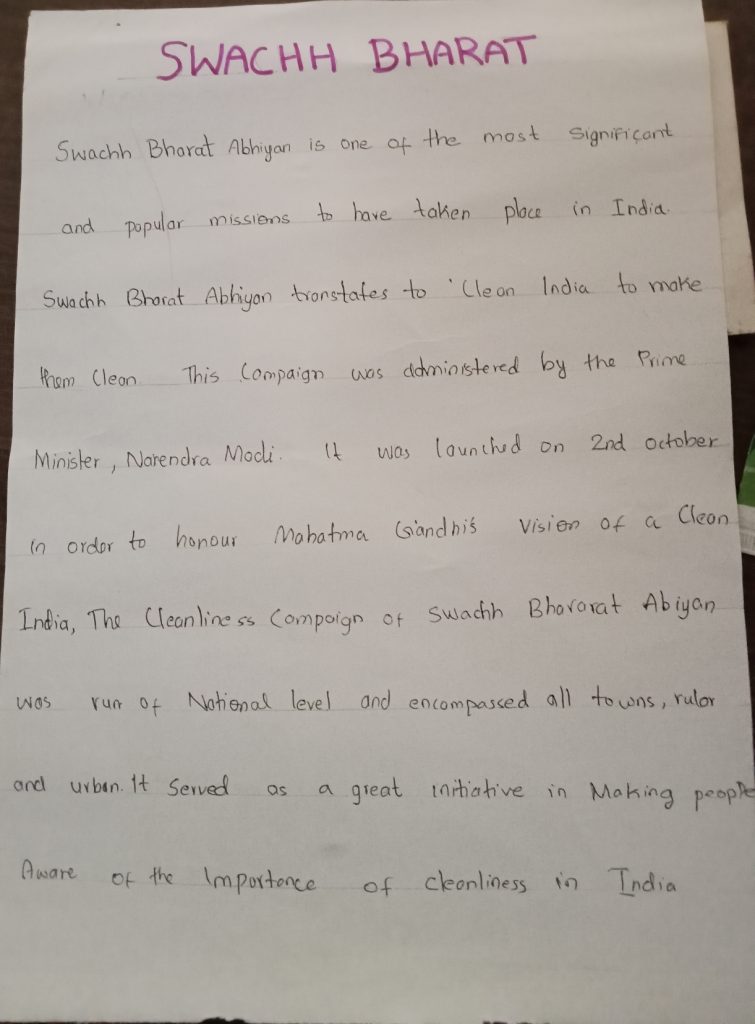 SWACHH BHARAT
Swachh Bharat Abhiyan is one of the most significant
and popular missions to have taken place in India.
Swachh Bharat Abhiyan transtates to 'Clean India to make
them Clean. This Campaign was administered by the Prime
Minister, Narendra Modi. It was launched on 2nd october
in order to honour Mahatma Gandhi's Vision of a Clean
India, The Cleanliness Campaign of Swachh Bhararat Abiyan
was run of National level and encompassed all towns, rular
and urban. It Served as a great initiative in Making people
Aware of the Importance of cleanliness in India